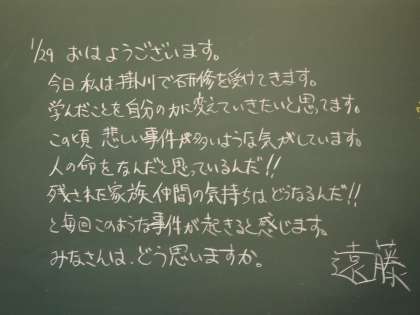 1/29 おはようございます。
今日私は掛川で研修を受けてきます。
学んだことを自分の力に変えていきたいと思ってます。
この頃 悲しい事件が多いような気がしています。
人の命をなんだと思っているんだ!!
残された家族、仲間の気持ちはどうなるんだ!!
と毎回このような事件が起きると感じます。
みなさんは、どう思いますか。
遠藤